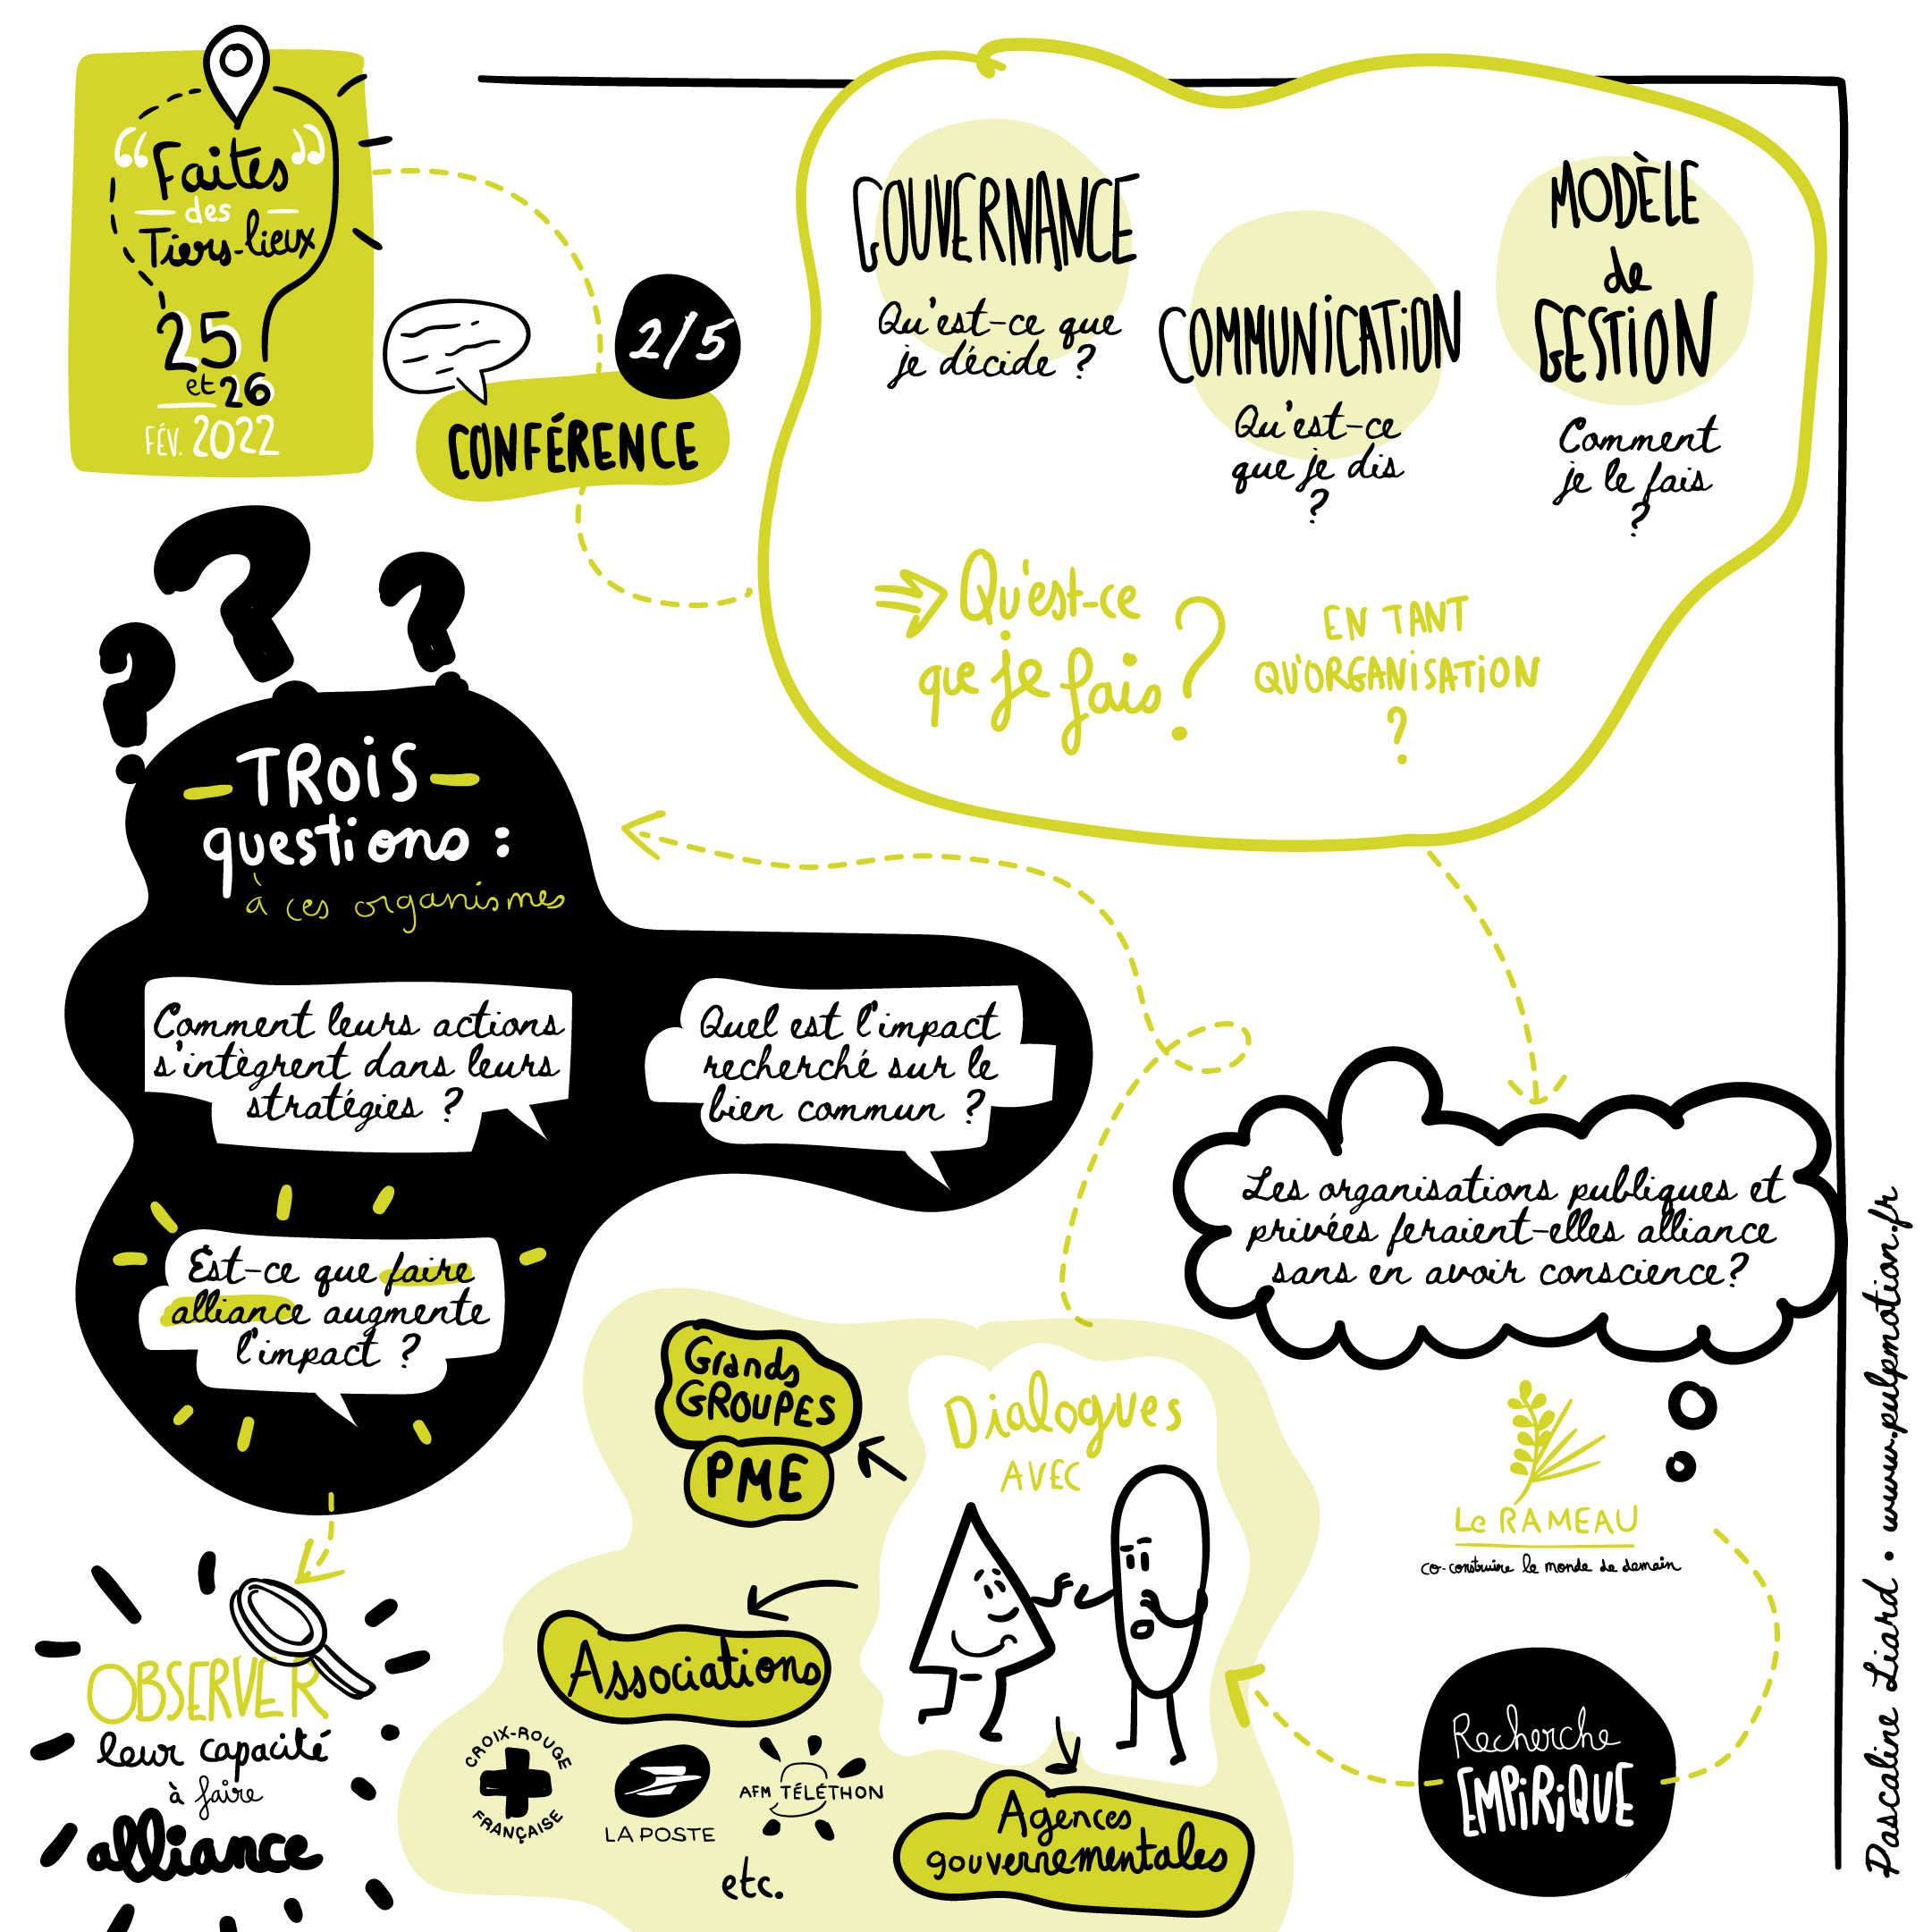 “Faites”
des
Tiers-lieux
25
et 26
FÉV. 2022
2/5
CONFÉRENCE
GOUVERNANCE
Qu'est-ce que
je décide ?
COMMUNICATION
Qu'est-ce
que je dis
?
MODÈLE
de
GESTION
Comment
je le fais
?
Qu'est-ce
que je fais ?
EN TANT
QU'ORGANISATION
?
Les organisations publiques et
privées feraient-elles alliance
sans en avoir conscience?
Le RAMEAU
co-construire le monde de demain
Recherche
EMPIRIQUE
Dialogues
AVEC
Grands
GROUPES
PME
Associations
CROIX-ROUGE
FRANÇAISE
LA POSTE
AFM TÉLÉTHON
etc.
Agences
gouvernementales
TROIS
questions :
à ces organismes
Comment leurs actions
s'intègrent dans leurs
stratégies ?
Quel est l'impact
recherché sur le
bien commun ?
Est-ce que faire
alliance augmente
l'impact ?
OBSERVER
leur capacité
à faire
alliance
Pascaline Liard • www.pulpmotion.fr